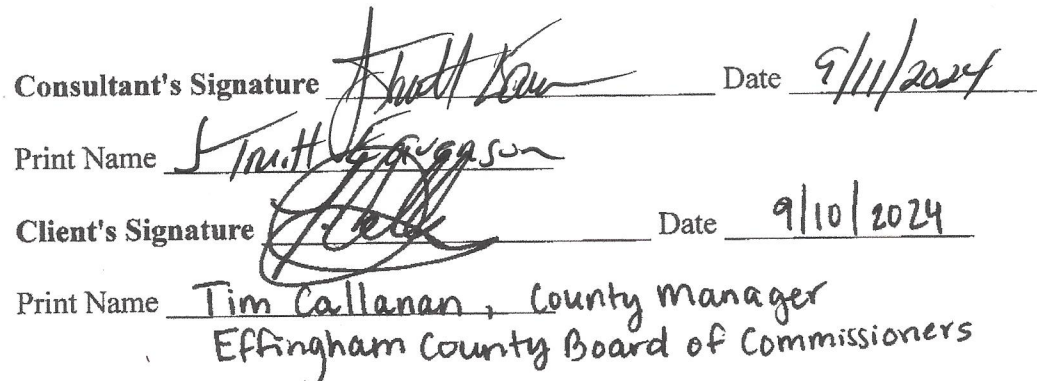 Consultant's Signature Date 9/11/2024
Print Name
Client's Signature Date 9/10/2024
Print Name Tim Callanan, County Manager
Effingham County Board of Commissioners